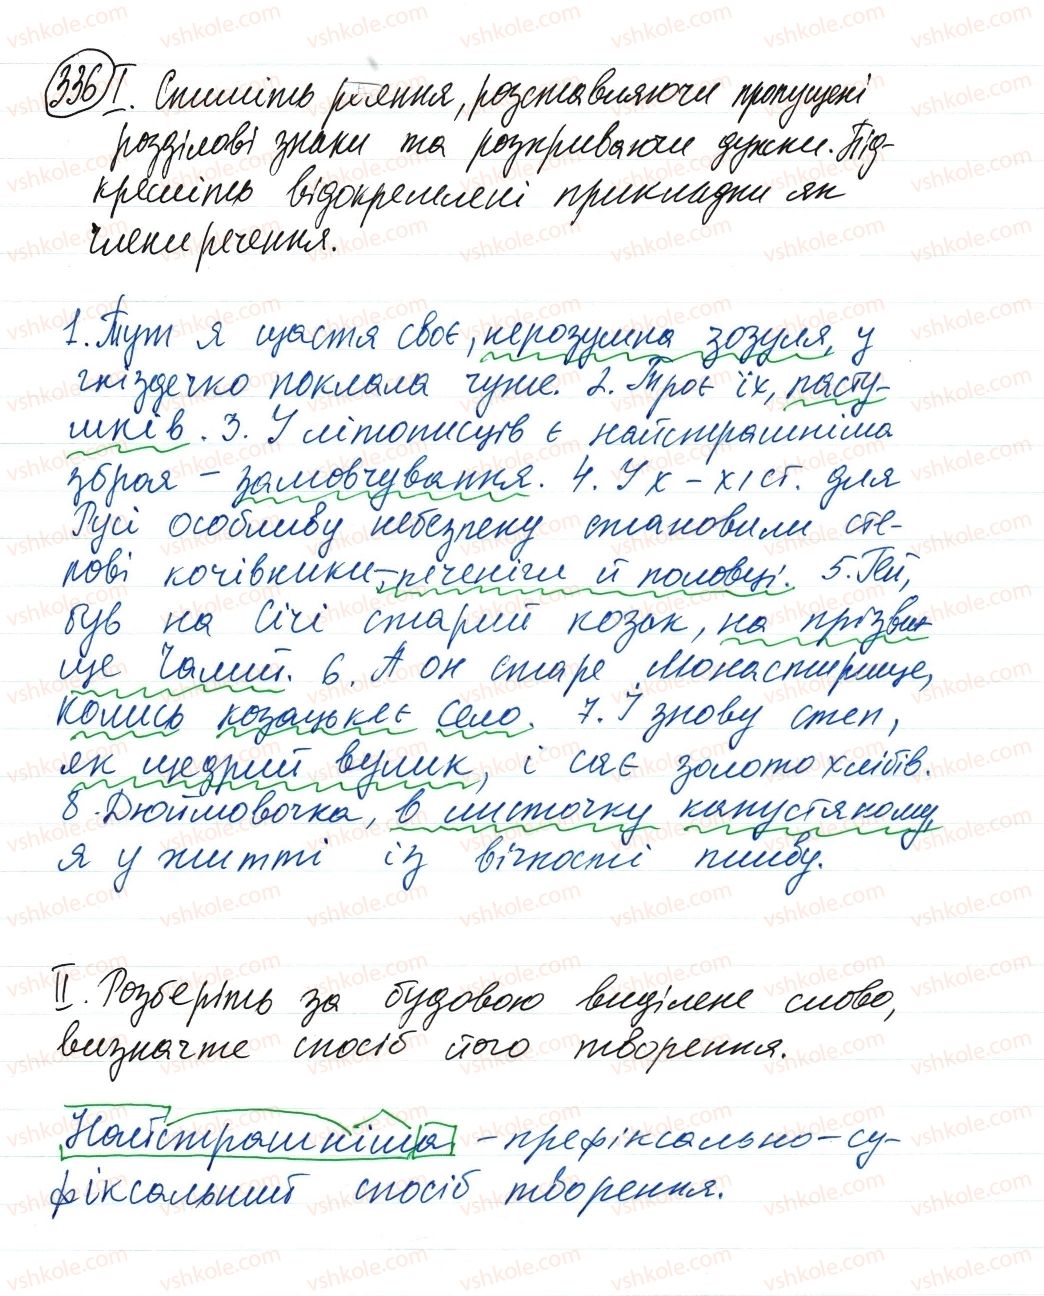 336 I. Спишіть речення, розставляючи пропущені
розділові знаки та розкриваючи дужки. Під-
кресліть відокремлені прикладки як
члени речення.
1. Тут я щастя своє, нерозумна зозуля, у
гніздечко поклала чуже. 2. Троє їх, пасту-
шків. 3. У літописців є найстрашніша
зброя – замовчування. 4. У X – XI ст. для
Русі особливу небезпеку становили сте-
пові кочівники – печеніги й половці. 5. Гей,
був на Січі старий козак, на прізви-
ще Чалий. 6. А он старе Монастирище,
колись козацькеє село. 7. І знову степ,
як щедрий вулик, і сяє золото хлібів.
8. Дюймовочка, в листочку капустяному,
я у житті із вічності пливу.
II. Розберіть за будовою виділене слово,
визначте спосіб його творення.
Найстрашніша – префіксально-су-
фіксальний спосіб творення.